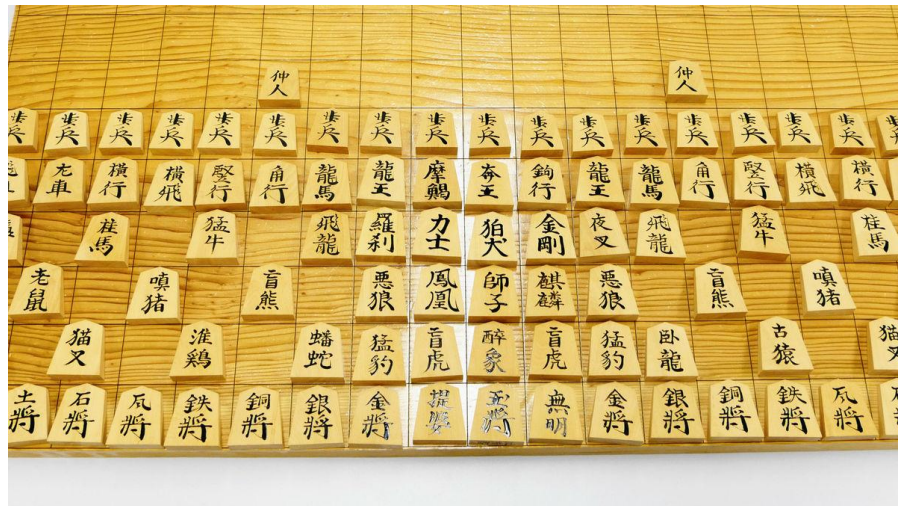 仲人 仲人
歩兵 歩兵 歩兵 歩兵 歩兵 歩兵 歩兵 歩兵 歩兵 歩兵 歩兵 歩兵 歩兵 歩兵 歩兵 歩兵 歩兵
飛車 横行 横飛 竪行 角行 龍馬 龍王 摩𩹄 奔王 鉤行 龍王 龍馬 角行 竪行 横飛 横行
桂馬 猛牛 飛龍 羅刹 力士 狛犬 金剛 夜叉 飛龍 猛牛 桂馬
老鼠 嗔猪 盲熊 悪狼 鳳凰 師子 麒麟 悪狼 盲熊 嗔猪
猫叉 淮鶏 蟠蛇 猛豹 盲虎 酔象 盲虎 猛豹 臥龍 古猿 猫叉
土将 石将 瓦将 鉄将 銅将 銀将 金将 提婆 玉将 無明 金将 銀将 銅将 鉄将 瓦将